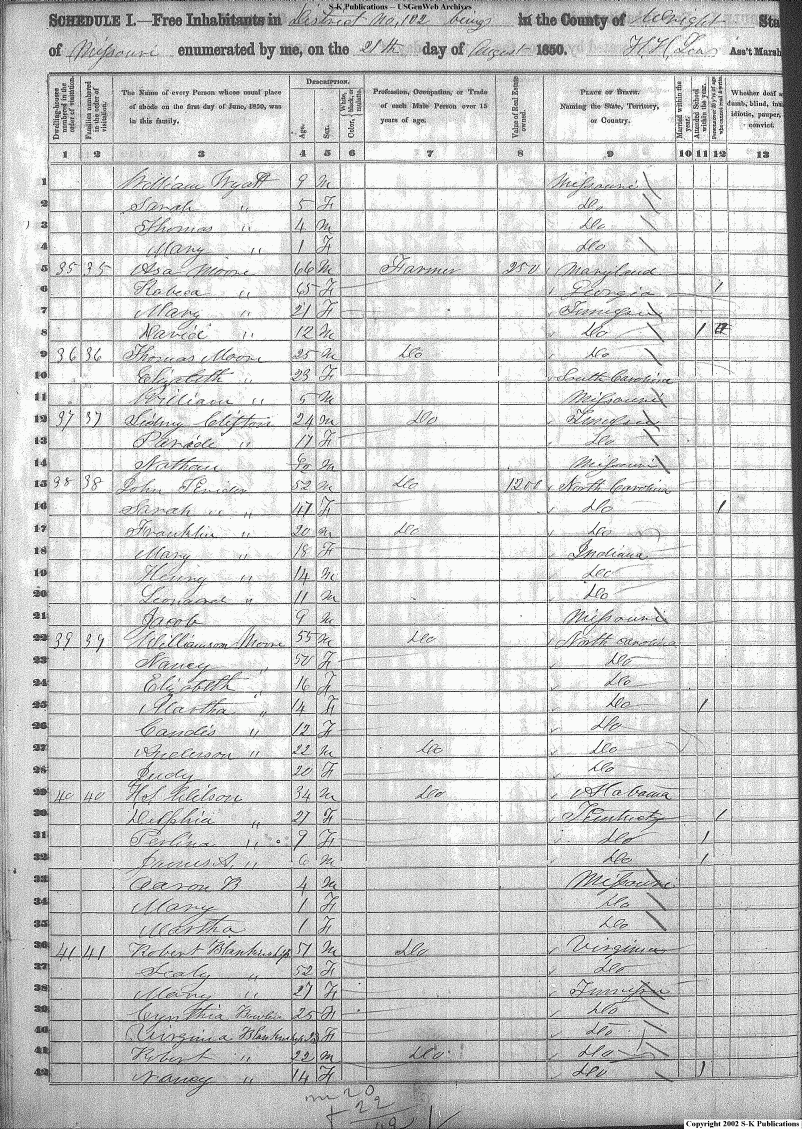 S-K Publications – USGenWeb Archives
SCHEDULE I.—Free Inhabitants in District No. 102 being in the County of Wright Sta
of Missouri enumerated by me, on the 21th day of August 1850. H H Ass't Marsh
Dwelling-houses numbered in the order of visitation. Families numbered in the order of visitation. The Name of every Person whose usual place of abode on the first day of June, 1850, was in this family. DESCRIPTION. Age. Sex. Color, White, black, or mulatto. Profession, Occupation, or Trade of each Male Person over 15 years of age. Value of Real Estate owned. PLACE OF BIRTH. Naming the State, Territory, or Country. Married within the year. Attended School within the year. Whether deaf a dumb, blind, ins idiotic, pauper, convict.
1 2 3 4 5 6 7 8 9 10 11 12 13
1 William Wyatt 9 M Missouri
2 Sarah " 5 F Do
3 Thomas " 4 M Do
4 Mary " 1 F Do
5 35 35 Asa Moore 66 M Farmer 250 Maryland
6 Rebeca " 65 F Georgia 1
7 Mary " 21 F
8 David " 12 M Do 1
9 36 36 Thomas Moore 25 M Do Do
10 Elizabeth " 23 F South Carolina
11 William " 5 M Missouri
12 37 37 Sidny Clifton 24 M Do
13 " 17 F Do
14 Nathan M Missouri
15 38 38 John 52 M Do 1200 North Carolina
16 Sarah " " 47 F Do 1
17 Franklin " 20 M Do Do
18 Mary " 18 F Indiana
19 Henry " 14 M Do
20 Leonard " 11 M Do
21 Jacob 9 M Missouri
22 39 39 Williamson Moore 55 M Do North Carolina
23 Nancy " 50 F Do
24 Elizabeth " 16 F Do
25 Martha " 14 F Do 1
26 Candis " 12 F Do
27 Anderson " 22 M Do Do
28 Judy 20 F Do
29 40 40 Wilson 34 M Do Alabama
30 Delphia " 27 F Kentucky 1
31 Perlina " 9 F Do 1
32 James A. " 6 M Do 1
33 Aaron B 4 M Missouri
34 Mary 1 F Do
35 Martha 1 F Do
36 41 41 Robert Blankenship 51 M Do Virginia
37 " 52 F Do
38 Mary " 27 F
39 25 F Do
40 Virginia F Do
41 Robert " 22 M Do Do
42 Nancy " 14 F Do 1
m 20
+ 22
Copyright 2002 S-K Publications